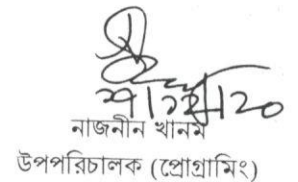 নাজনীন খানম
উপপরিচালক (প্রোগ্রামিং)